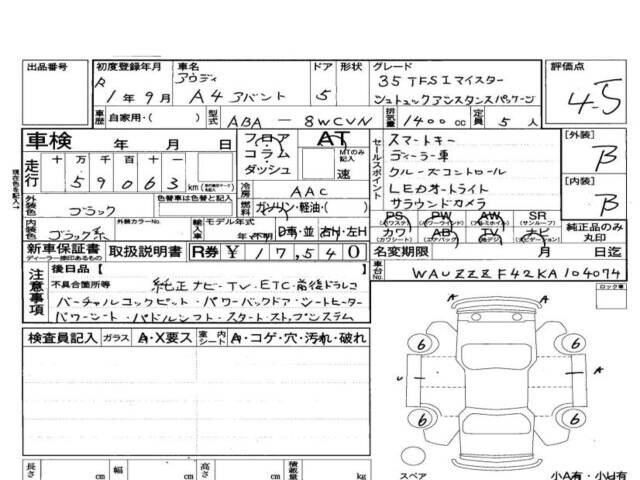 出品番号 初度登録年月 車名 ドア 形状 グレード 評価点
R 1年9月 アウディ A4 アバント 5 35 TFSI マイスター 4.5
シュトュックアシスタンスパッケージ
車歴 自家用・( ) 型式 ABA - 8WCVN 排気量 1400cc 定員 5人
車検 年 月 日 フロア コラム・ダッシュ AT MTのみ記入 速 セールスポイント スマートキー [外装] B
走行 十万千百十 59063 km ディーラー車
現在色を記入 冷房 AAC クルーズコントロール [内装] B
外装色 ブラック 色替車は色替と記入 燃料 ガソリン・軽油・( ) LEDオートライト
サラウンドカメラ
内装色 ブラック系 外装カラーNo. 輸入車 モデル年式 年・不明 D車・並 右H・左H
PS (パワステ) PW (パワーウインド) AW (アルミホイル) SR (サンルーフ) 純正品のみ丸印
カワ (カワシート) エアB (エアバッグ) TV (地デジ) ナビ (ナビゲーション)
新車保証書 ディーラー捺印あるもの 取扱説明書 R券 ¥17,540 名変期限 月 日迄
注意事項 後日品【 】 車台No. WAUZZZF42KA104074
不具合箇所等 純正ナビ・TV・ETC・前後ドラレコ ロック車
バーチャルコックピット・パワーバックドア・シートヒーター
パワーシート・パドルシフト・スタートストップシステム
検査員記入 ガラス A・X要ス 室内シート A・コゲ・穴・汚れ・破れ
A A
6 6
U A
6 6
長さ cm 幅 cm 高さ cm 積載量 kg スペア 小A有・小U有